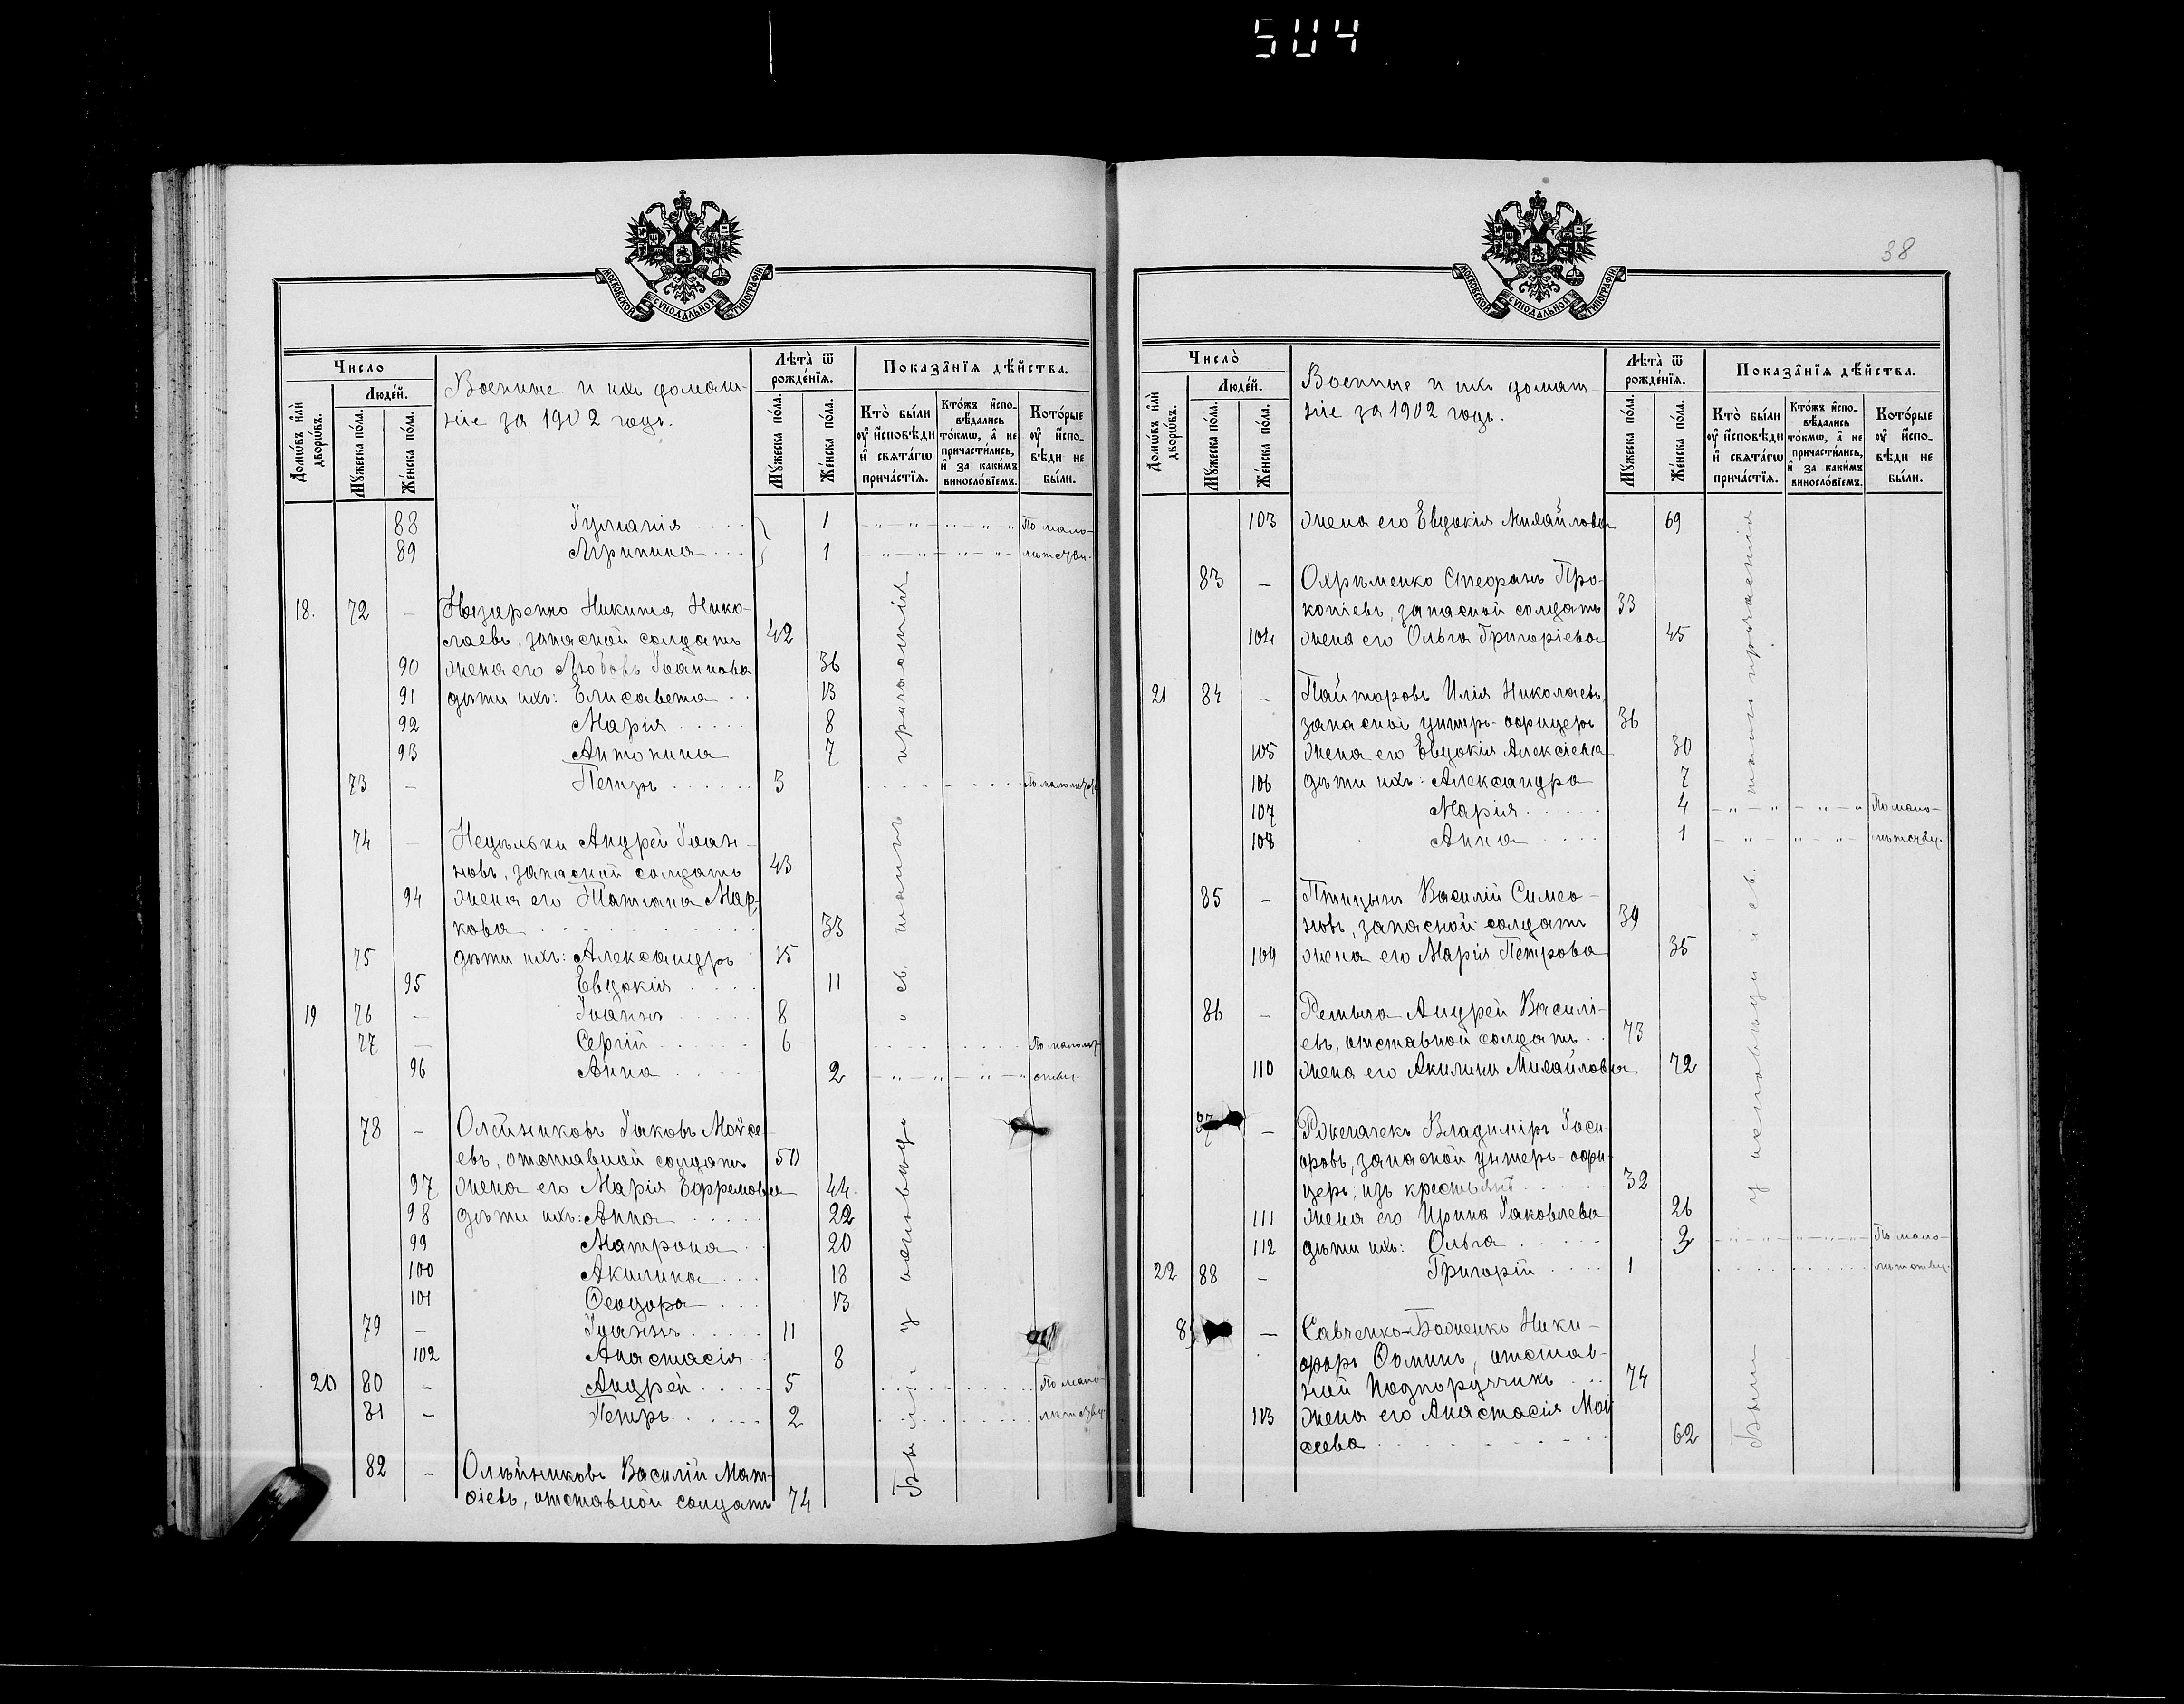 504
МОСКОВСКОЙ СѴНОДАЛЬНОЙ ТИПОГРАФІИ
Число
Домѡвъ и҆лѝ дворѡвъ.
Люде́й.
Мꙋ́жеска по́ла.
Же́нска по́ла.
Военные и ихъ домаш-
ніе за 1902 годъ.
Лѣта̀ ѿ рожде́нїѧ.
Мꙋ́жеска по́ла.
Же́нска по́ла.
Показа̑нїѧ дѣ́йства.
Кто̀ бы́ли ᲂу҆ и҆сповѣди и҆ свѧта́гѡ прича́стїѧ.
Кто́жъ и҆сповѣ́дались то́кмѡ, а҆ не причасти́лись, и҆ за каки́мъ винословїемъ.
Кото́рые ᲂу҆ и҆сповѣди не бы́ли.
88 Іуліанія 1 По мало-
89 Агрипина 1 лѣтству.
18. 72 — Назаренко Никита Нико-
лаевъ, запасной солдатъ 42
90 жена его Любовь Іоаннова 36
91 дѣти ихъ: Елисавета 13
92 Марія 8
93 Антонина 7
73 — Петръ 3 По малолѣтст
74 — Недѣлька Андрей Іоан-
новъ, запасной солдатъ 43
94 жена его Татіана Мар-
кова 33
75 дѣти ихъ: Александръ 15
95 Евдокія 11
19 76 — Іоаннъ 8
77 — Сергій 6 По малолѣт
96 Анна 2 ству.
78 — Олейниковъ Іаковъ Мойсе-
евъ, отставной солдатъ 50
97 жена его Марія Ефремова 44
98 дѣти ихъ: Анна 22
99 Матрона 20
100 Акилина 18
101 Ѳеодора 13
79 — Іоаннъ 11
102 Анастасія 8
20 80 — Андрей 5 По мало-
81 — Петръ 2 лѣтству
82 — Олѣйниковъ Василій Мат-
ѳіевъ, отставной солдатъ 74
Были у исповѣди и св. таинъ причастія
38
МОСКОВСКОЙ СѴНОДАЛЬНОЙ ТИПОГРАФІИ
Число̀
Домѡвъ и҆лѝ дворѡвъ.
Люде́й.
Мꙋ́жеска по́ла.
Же́нска по́ла.
Военные и ихъ домаш-
ніе за 1902 годъ.
Лѣта̀ ѿ рожде́нїѧ.
Мꙋ́жеска по́ла.
Же́нска по́ла.
Показа̑нїѧ дѣ́йства.
Кто̀ бы́ли ᲂу҆ и҆сповѣди и҆ свѧта́гѡ прича́стїѧ.
Кто́жъ и҆сповѣ́дались то́кмѡ, а҆ не причасти́лись, и҆ за каки́мъ винословїемъ.
Кото́рые ᲂу҆ и҆сповѣди не бы́ли.
103 жена его Евдокія Михайлова 69
83 — Охрименко Стефанъ Про-
копіевъ, запасной солдатъ 33
104 жена его Ольга Григоріева 45
21 84 — Пайторовъ Илія Николаевъ,
запасной унтеръ-офицеръ 36
105 жена его Евдокія Алексіева 30
106 дѣти ихъ: Александра 7
107 Марія 4 По мало-
108 Анна 1 лѣтству.
85 — Птицынъ Василій Симео-
новъ, запасной солдатъ 39
109 жена его Марія Петрова 35
86 — Репыга Андрей Василі-
евъ, отставной солдатъ 73
110 жена его Акилина Михайлова 72
87 — Владиміръ Іоси-
фовъ, запасной унтеръ-офи-
церъ; изъ крестьянъ 32
111 жена его Ирина Іаковлева 26
112 дѣти ихъ: Ольга 3 По мало-
22 88 — Григорій 1 лѣтству.
8 — Савченко-Бабненко Ники-
форъ Ѳоминъ, отстав-
ной подпоручикъ 74
113 жена его Анастасія Мой
сеева 62
Были у исповѣди и св. таинъ причастія